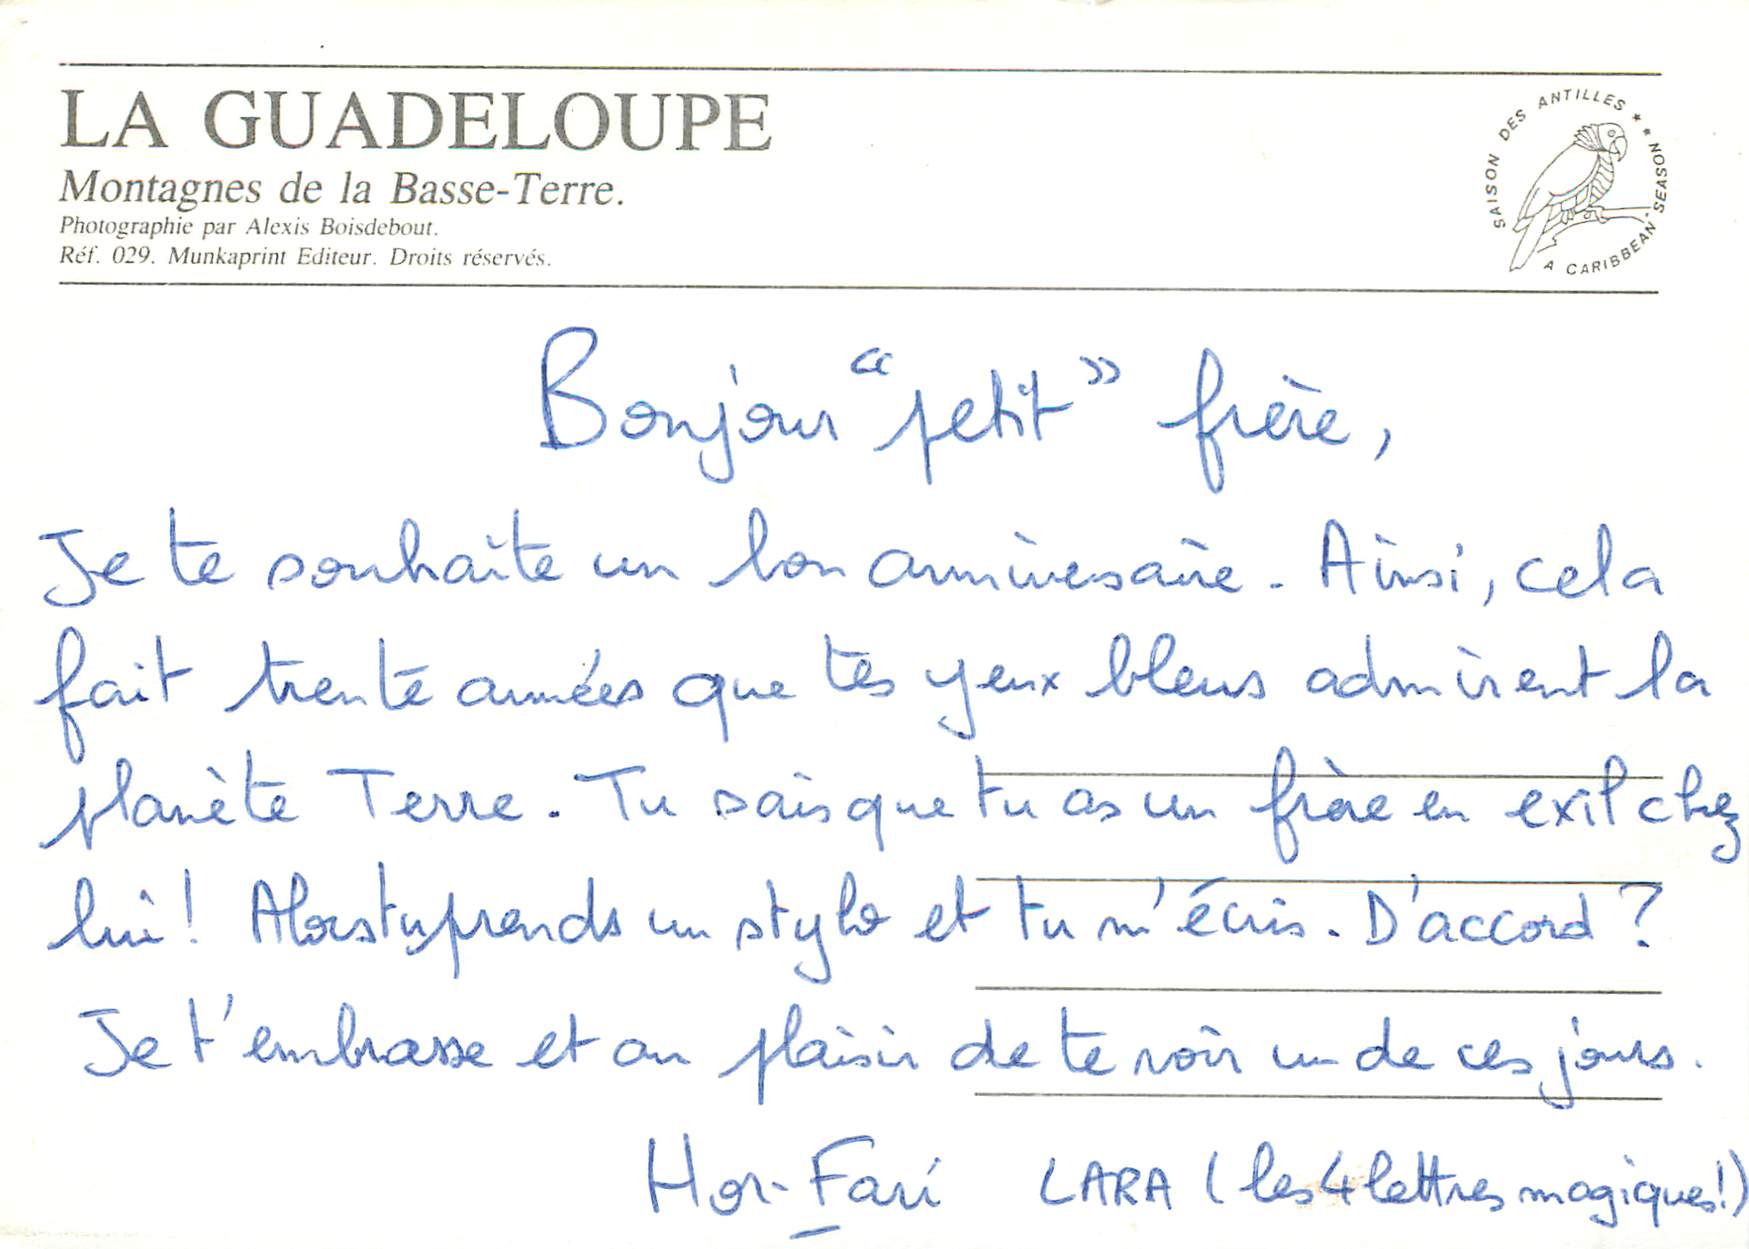 LA GUADELOUPE
Montagnes de la Basse-Terre.
Photographie par Alexis Boisdebout.
Réf. 029. Munkaprint Editeur. Droits réservés.
SAISON DES ANTILLES ** A CARIBBEAN SEASON
Bonjour "petit" frère,
Je te souhaite un bon anniversaire. Ainsi, cela
fait trente années que tes yeux bleus admirent la
planète Terre. Tu sais que tu as un frère en exil chez
lui! Alors tu prends un stylo et tu m'écris. D'accord?
Je t'embrasse et au plaisir de te voir un de ces jours.
LARA (les 4 lettres magiques!)